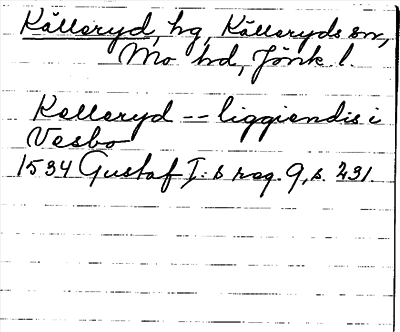 Källeryd, hg, Källeryds sn,
Mo hd, Jönk l.
Kelleryd -- liggiendis i
Vesbo
1534 Gustaf I:s reg. 9, s. 231